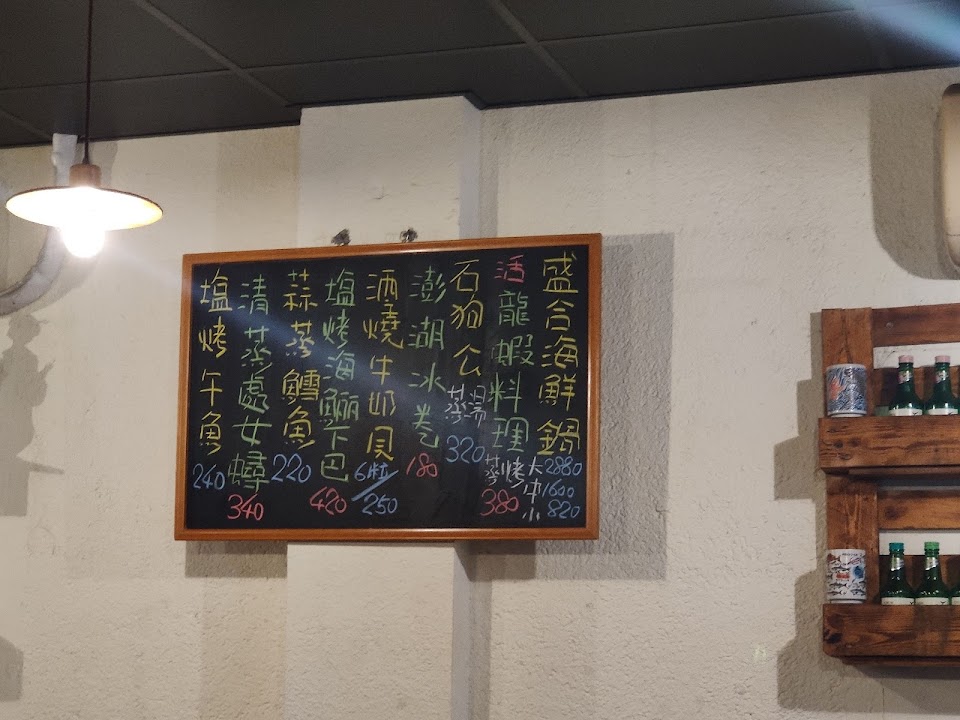 盛合海鮮鍋 大2880 中1600 小820
活龍蝦料理 蒸烤 380
石狗公 蒸湯 320
澎湖冰卷 180
酒燒牛奶貝 6粒/250
塩烤海鱺下巴 420
蒜蒸鱈魚 220
清蒸處女蟳 340
塩烤午魚 240